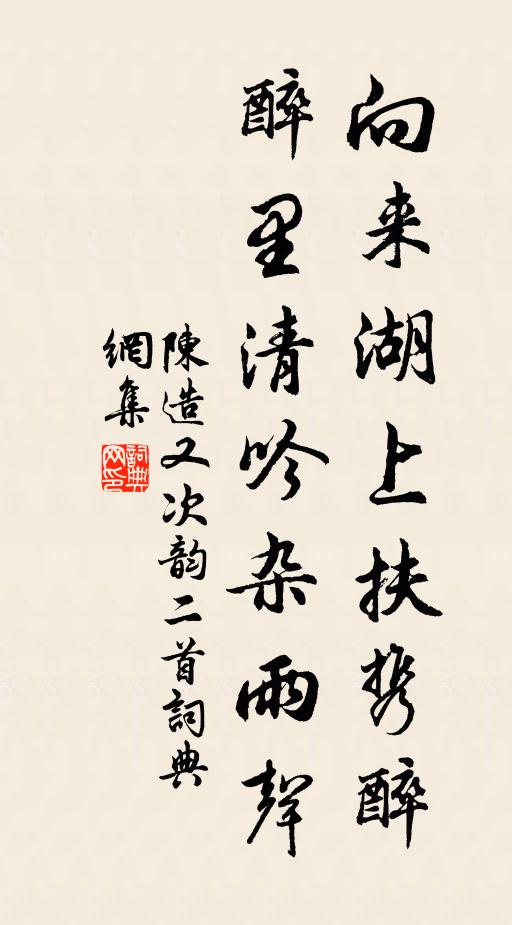 向来湖上扶携醉
醉里清吟杂雨聲
陳造又次韵二首詞典
網集
詞典
网印